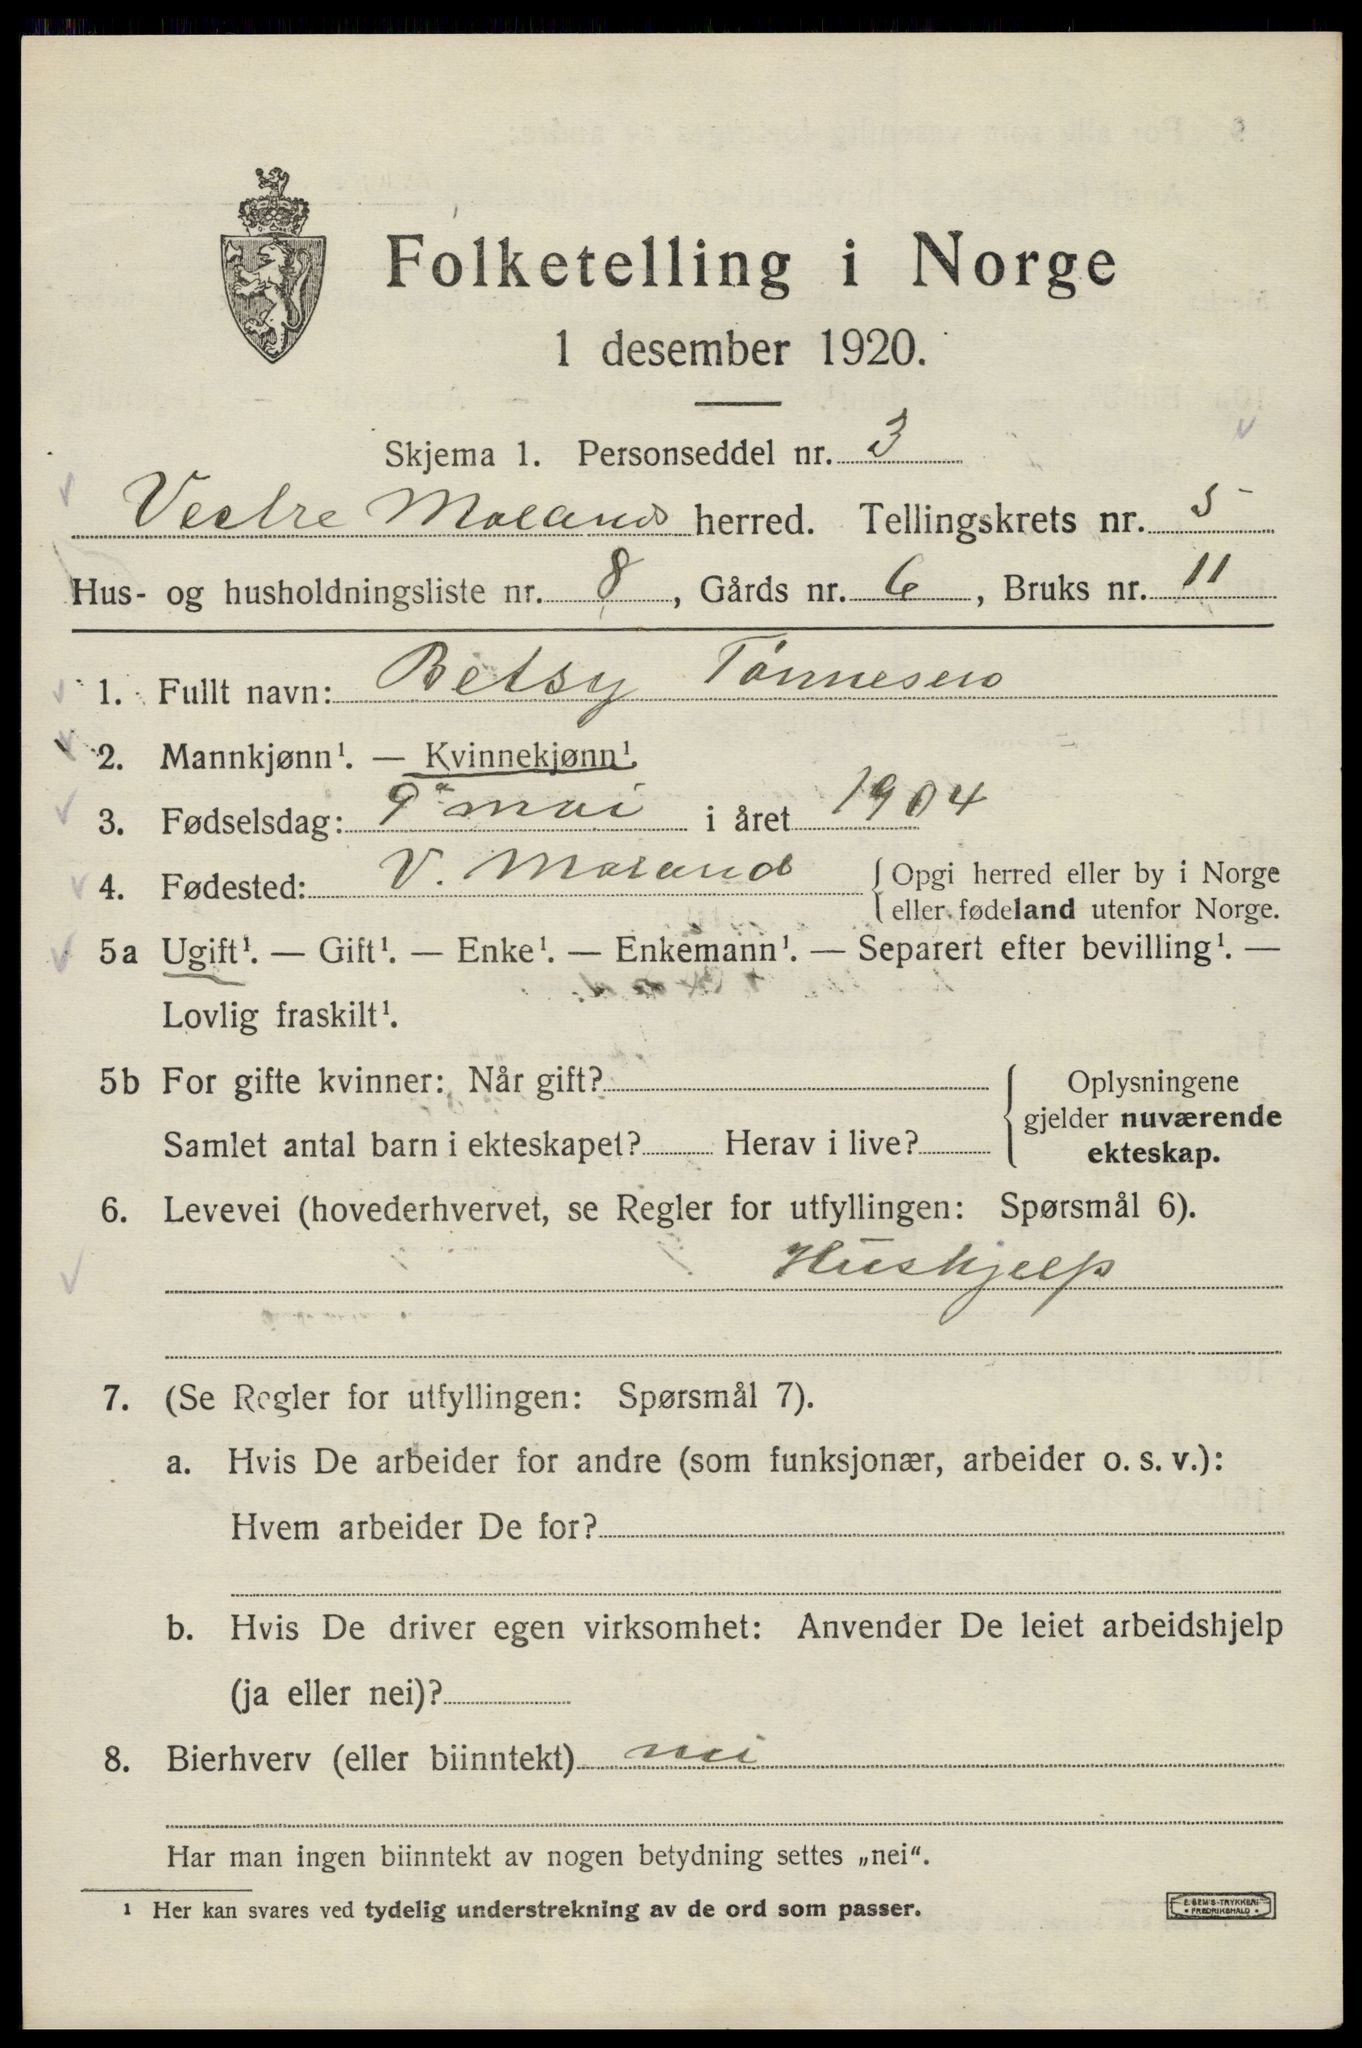 Folketelling i Norge
1 desember 1920.
Skjema 1. Personseddel nr. 3
Vestre Moland herred. Tellingskrets nr. 5
Hus- og husholdningsliste nr. 8, Gårds nr. 6, Bruks nr. 11
1. Fullt navn: Betsy Tønnesen
2. Mannkjønn¹. — Kvinnekjønn¹.
3. Fødselsdag: 9de mai i året 1904
4. Fødested: V. Moland {Opgi herred eller by i Norge
eller fødeland utenfor Norge.
5a Ugift¹. — Gift¹. — Enke¹. — Enkemann¹. — Separert efter bevilling¹. —
Lovlig fraskilt¹.
5b For gifte kvinner: Når gift? Oplysningene
gjelder nuværende
Samlet antal barn i ekteskapet? Herav i live? ekteskap.
6. Levevei (hovederhvervet, se Regler for utfyllingen: Spørsmål 6).
Hushjelp
7. (Se Regler for utfyllingen: Spørsmål 7).
a. Hvis De arbeider for andre (som funksjonær, arbeider o. s. v.):
Hvem arbeider De for?
b. Hvis De driver egen virksomhet: Anvender De leiet arbeidshjelp
(ja eller nei)?
8. Bierhverv (eller biinntekt) nei
Har man ingen biinntekt av nogen betydning settes „nei“.
¹ Her kan svares ved tydelig understrekning av de ord som passer.
E. SEM'S TRYKKERI
FREDRIKSHALD